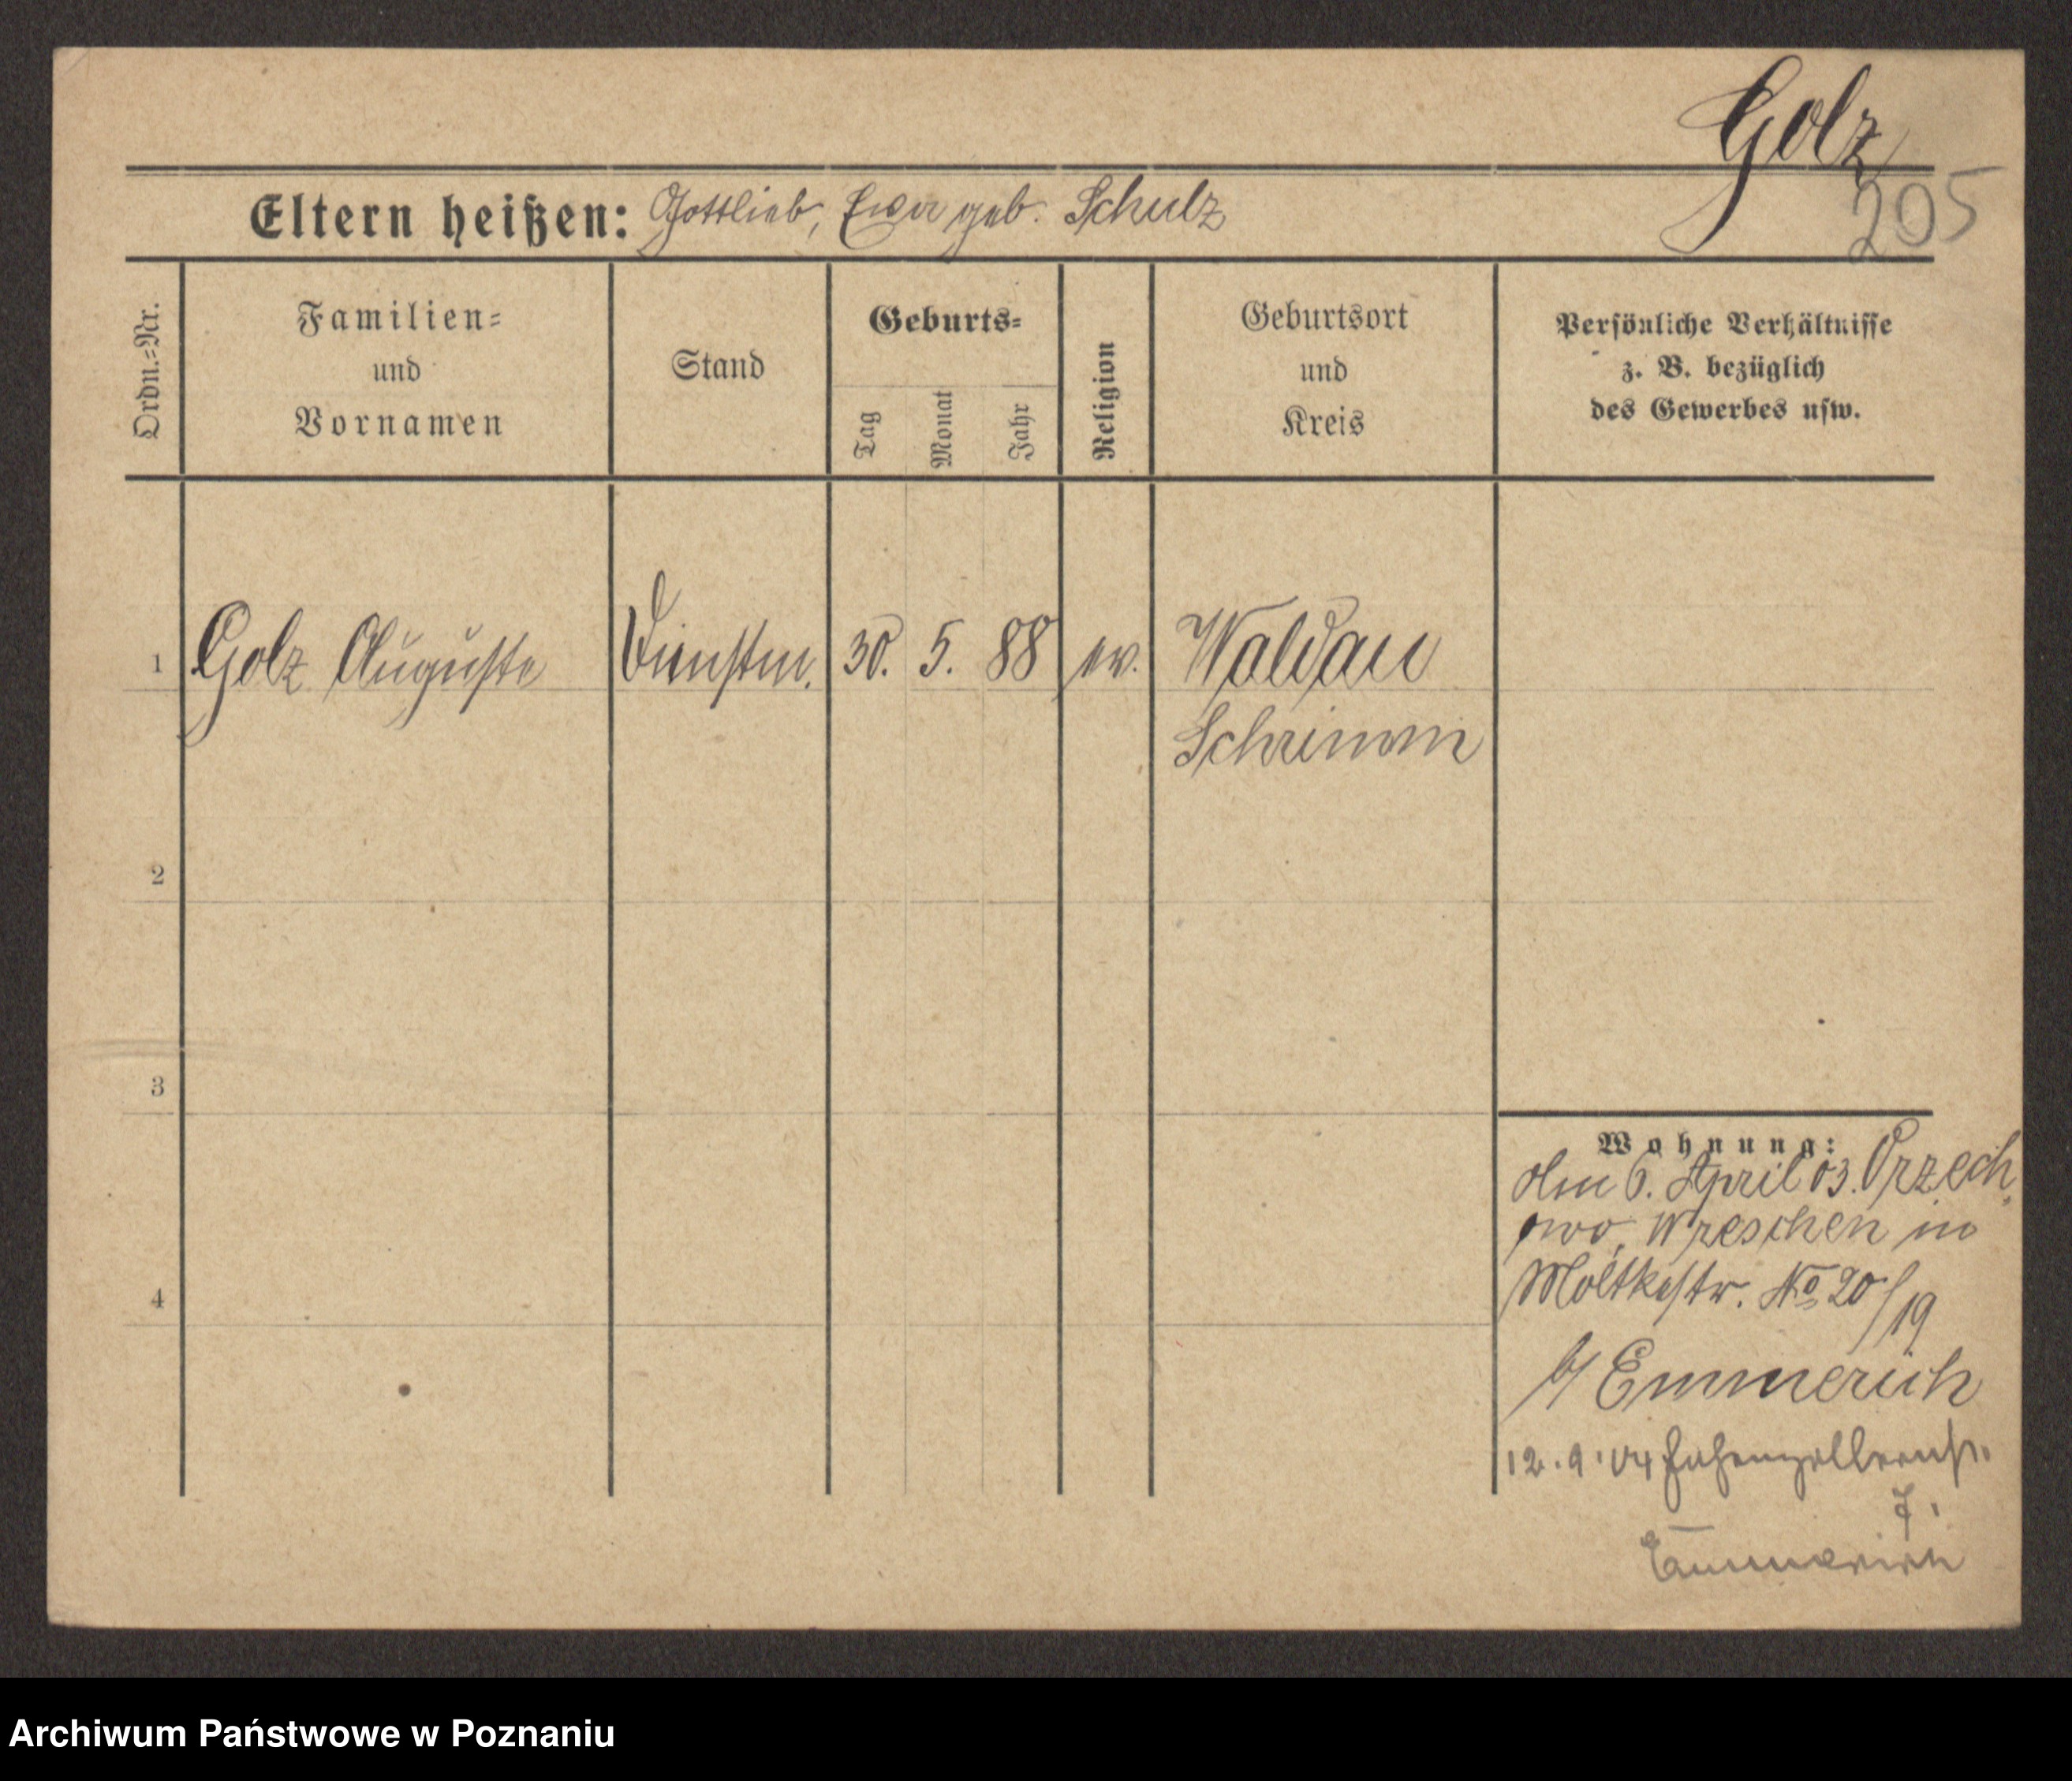 Golz
205
Eltern heißen: Gottlieb, Ewa geb. Schulz
Ordn.=Nr.
Familien=
und
Vornamen
Stand
Geburts=
Tag
Monat
Jahr
Religion
Geburtsort
und
Kreis
Persönliche Verhältnisse
z. B. bezüglich
des Gewerbes usw.
1 Golz Auguste Dienstm. 30. 5. 88 ev. Waldau
Schrimm
2
3
4
Wohnung:
Am 6. April 03. Orzech-
owo, Wreschen in
Moltkestr. No 20/19
b/ Emmerich
12.9.04 Hohenzollernst.
7.
Emmerich
Archiwum Państwowe w Poznaniu